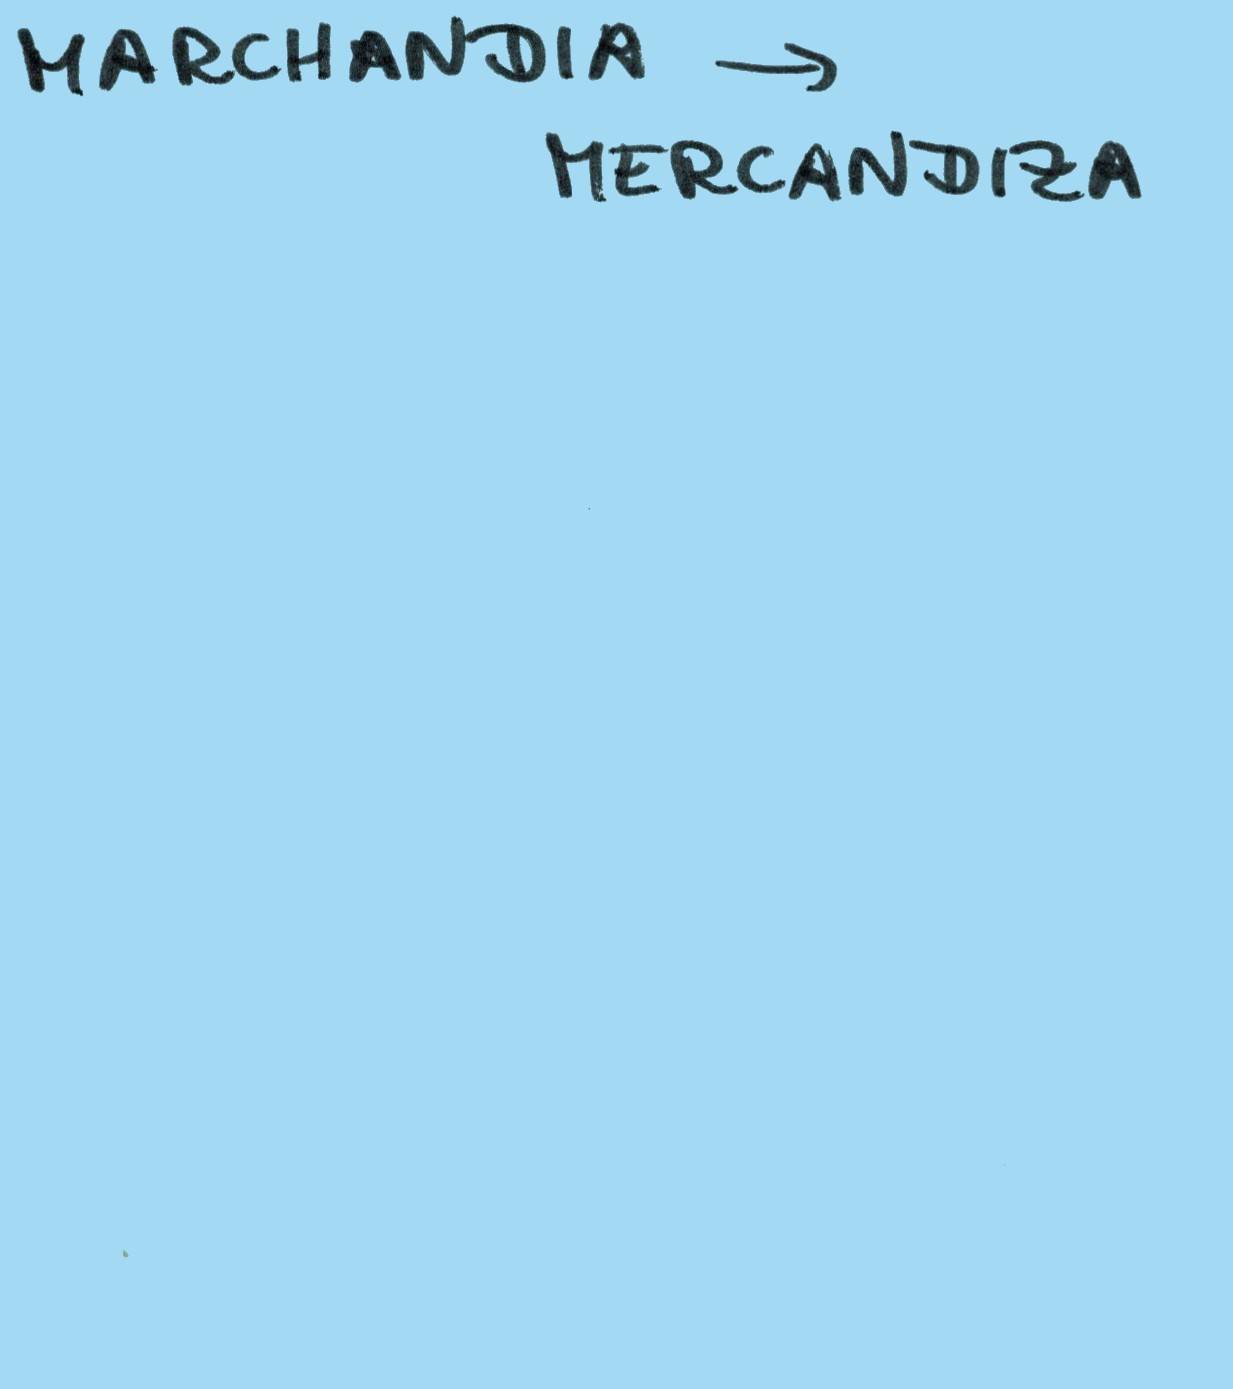 MARCHANDIA →
MERCANDIZA